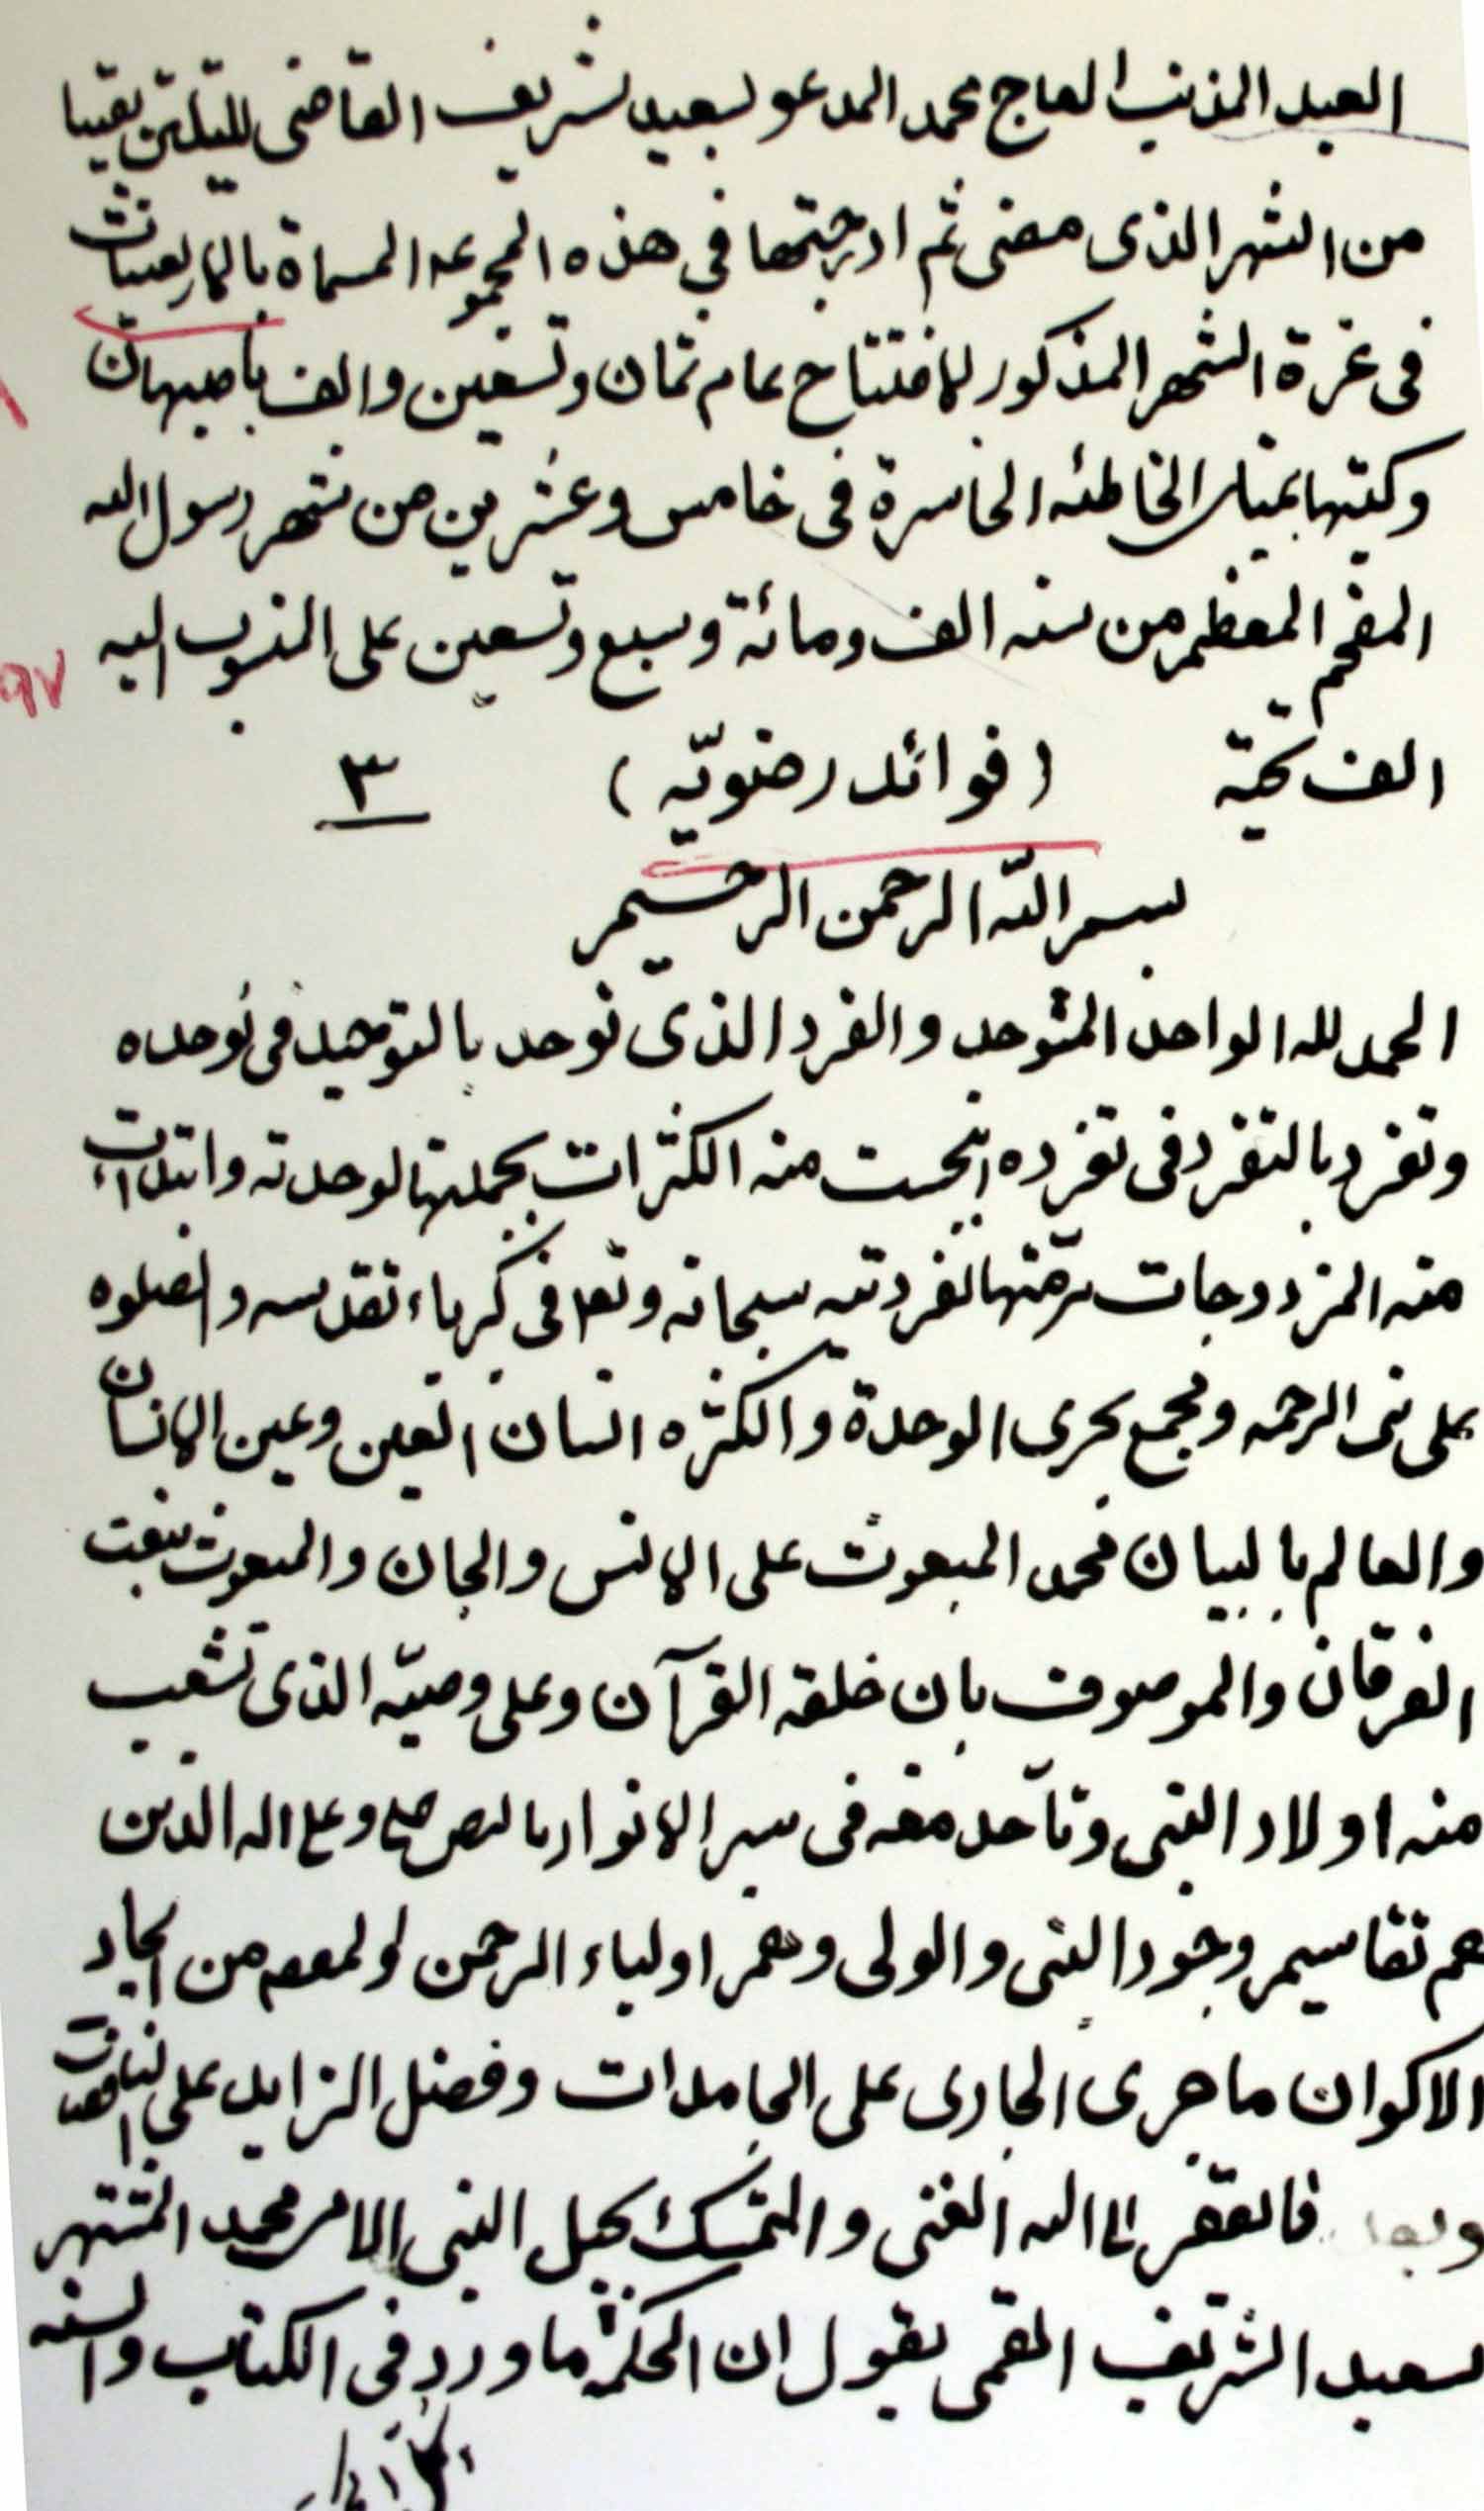 العبد المذنب الحاج محمد المدعو بسعيد شريف القاضى لليلتين بقيتا
من الشهر الذى مضى ثم ادرجتها في هذه المجموعه المسماة بالاربعينات
فى غرة الشهر المذكور لافتتاح عام ثمان وتسعين والف باصبهان
وكتبتها الخاطئه الخاسرة فى خامس وعشرين من شهر رسول الله
المفخم المعظم من سنه الف ومائة وسبع وتسعين على المنسوب اليه
الف تحيّة (فوائد رضويّه) ٣
بسم الله الرحمن الرحيم
الحمد لله الواحد المتوحد والفرد الذى توحد بالتوحيد فى توحده
وتفرد بالتفرد فى تفرده انبجست منه الكثرات بجملتها لوحدته وابتدات
منه المزدوجات برمّتها لفردتيه سبحانه وتعا فى كبرياء تقدسه والصلوه
على نبى الرحمه ومجمع بحرى الوحدة والكثره انسان العين وعين الانسان
والعالم بالبيان محمد المبعوث على الانس والجان والمبعوث بنعت
الفرقان والموصوف بان خلقه القرآن وعلى وصيّه الذى تشعب
منه اولاد النبى وتأحد معه فى سير الانوار بالنص صلع وعلى اله الذين
هم تقاسيم وجود النبى والولى وهم اولياء الرحمن من ايجاد
الاكوان ما جرى الجارى على الجامدات وفضل الزايد على
وبعد فالفقير الى الله الغنى والمتمسك بحبل النبى الامى محمد المشتهر
بسعيد الشريف القمى يقول ان الحكمة ما ورد فى الكتاب والسنه